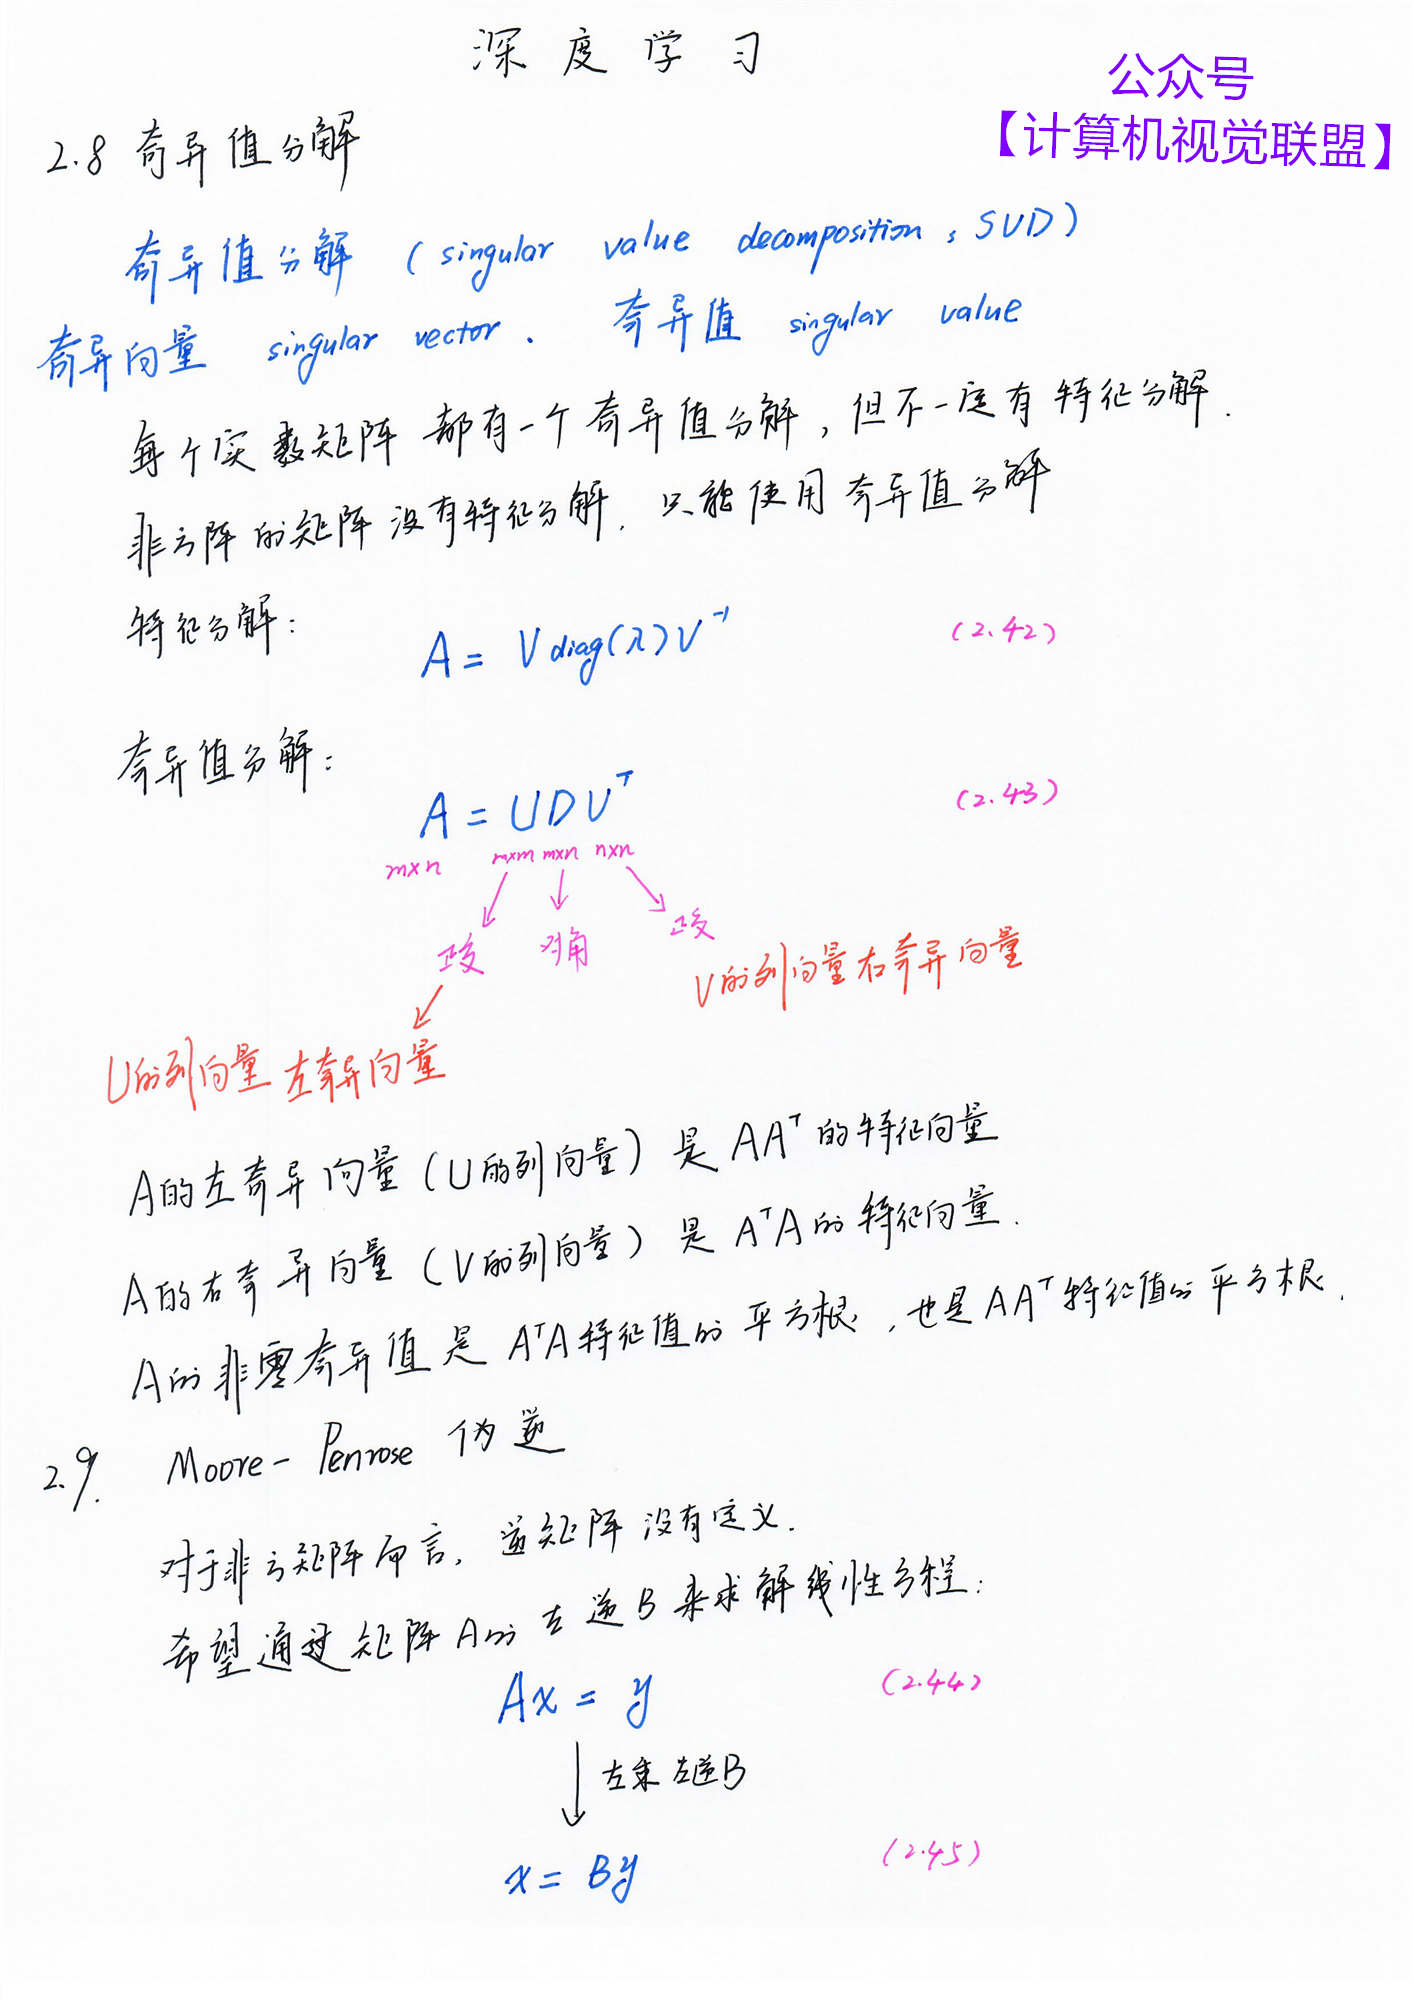 深度学习
公众号
【计算机视觉联盟】
2.8 奇异值分解
奇异值分解 (singular value decomposition, SVD)
奇异向量 singular vector. 奇异值 singular value
每个实数矩阵都有一个奇异值分解, 但不一定有特征分解.
非方阵的矩阵没有特征分解, 只能使用奇异值分解
特征分解:
A = V diag(λ) V⁻¹ (2.42)
奇异值分解:
A = U D Vᵀ (2.43)
m×n m×m m×n n×n
正交 对角 正交
V的列向量右奇异向量
U的列向量 左奇异向量
A的左奇异向量 (U的列向量) 是 AAᵀ 的特征向量
A的右奇异向量 (V的列向量) 是 AᵀA 的特征向量.
A的非零奇异值是 AᵀA 特征值的平方根, 也是 AAᵀ 特征值的平方根.
2.9. Moore-Penrose 伪逆
对于非方矩阵而言, 逆矩阵没有定义.
希望通过矩阵A的左逆B来求解线性方程:
Ax = y (2.44)
左乘左逆B
x = By (2.45)